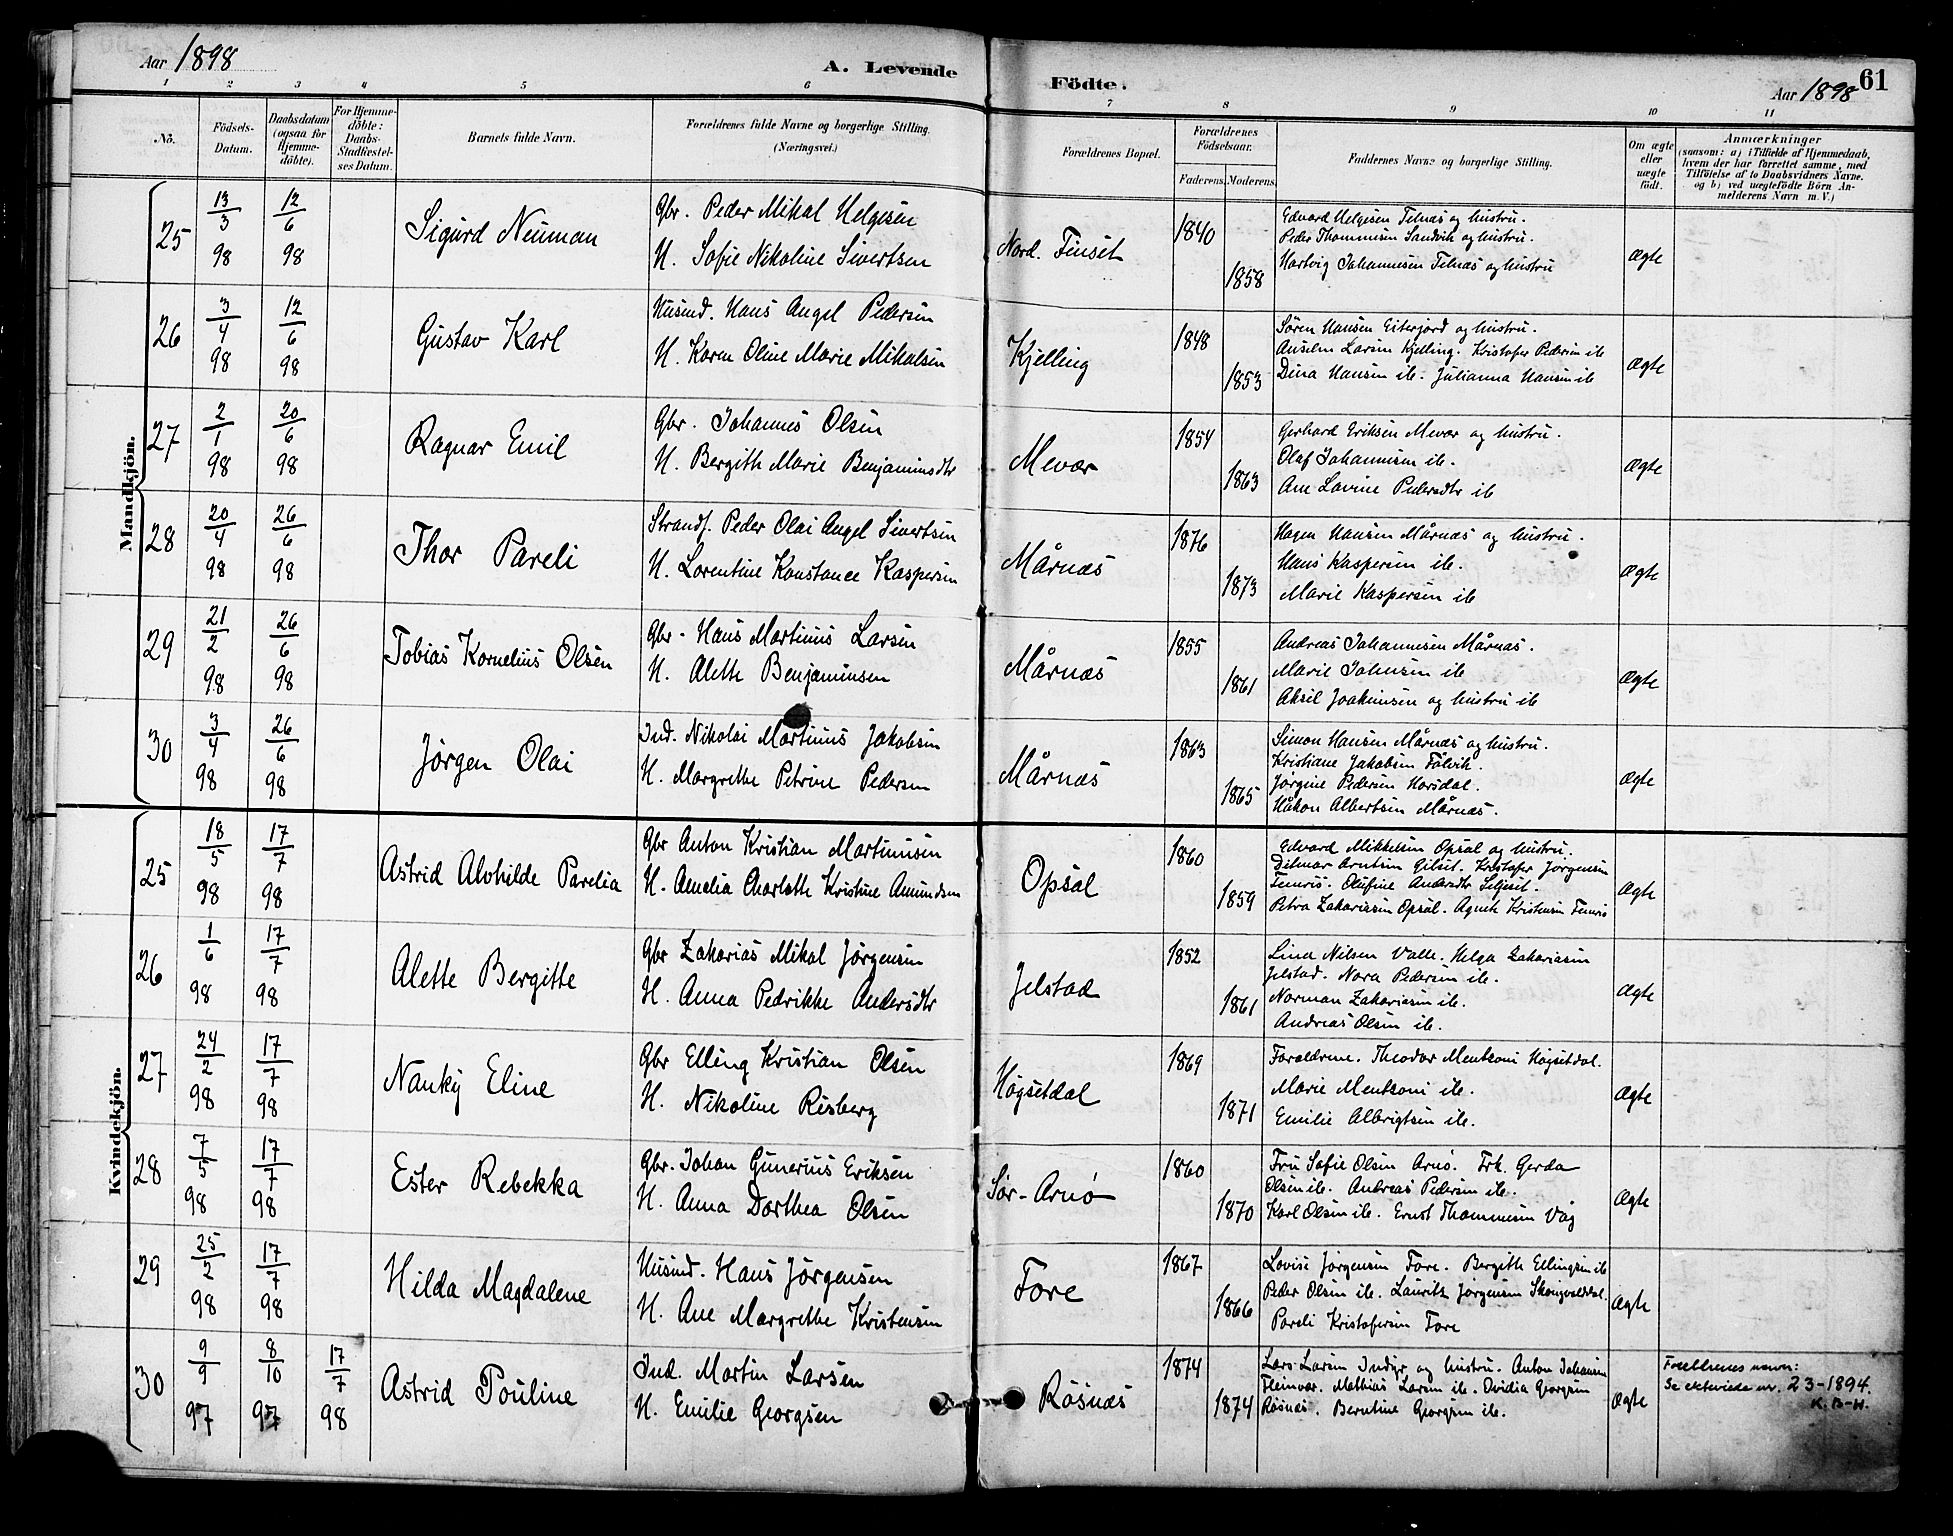 Aar 1898
A. Levende Födte.
Aar 1898
61
1 2 3 4 5 6 7 8 9 10 11
No.
Födsels-Datum.
Daabsdatum (ogsaa for Hjemme-döbte).
For Hjemme-döbte: Daabs-Stadfæstel-ses Datum.
Barnets fulde Navn.
Forældrenes fulde Navne og borgerlige Stilling.
(Næringsvei.)
Forældrenes Bopæl.
Forældrenes Födselsaar.
Faderens. Moderens.
Faddernes Navne og borgerlige Stilling.
Om ægte eller uægte födt.
Anmærkninger
(saasom: a) i Tilfælde af Hjemmedaab, hvem der har forrettet samme, med Tilföielse af to Daabsvidners Navne, og b) ved uægtefödte Börn Anmelderens Navn m. V.)
Mandkjön.
25 13/3 98 12/6 98 Sigurd Neuman
Gbr. Peder Mikal Helgesen
H. Sofie Nikoline Sivertsen
Nord. Finset 1840 1858
Edvard Helgesen Telnæs og hustru.
Peder Thommesen Sandvik og hustru.
Hartvig Johannesen Telnæs og hustru
Ægte
26 3/4 98 12/6 98 Gustav Karl
Husmd. Hans Angel Pedersen
H. Karen Oline Marie Mikalsen
Kjelling 1848 1853
Søren Hansen Eiterjord og hustru.
Anselm Larsen Kjelling. Kristofer Pedersen ib
Dina Hansen ib. Julianna Hansen ib
Ægte
27 2/1 98 20/6 98 Ragnar Emil
Gbr. Johannes Olsen
H. Bergith Marie Benjaminsdtr
Mevær 1854 1863
Gerhard Eriksen Mevær og hustru.
Olaf Johannesen ib.
Ane Lovine Pedersdtr ib
Ægte
28 20/4 98 26/6 98 Thor Pareli
Strands. Peder Olai Angel Sivertsen
H. Lorentine Konstance Kaspersen
Mårnæs 1876 1873
Hagen Hansen Mårnæs og hustru.
Hans Kaspersen ib.
Marie Kaspersen ib
Ægte
29 21/2 98 26/6 98 Tobias Kornelius Olsen
Gbr. Hans Martinus Larsen
H. Alette Benjaminsen
Mårnæs 1855 1861
Andreas Johannesen Mårnæs.
Marie Johnsen ib
Aksel Joakimsen og hustru ib
Ægte
30 3/4 98 26/6 98 Jørgen Olai
Ind. Nikolai Martinus Jakobsen
H. Margrethe Petrine Pedersen
Mårnæs 1863 1865
Simon Hansen Mårnæs og hustru.
Kristiane Jakobsen Følvik.
Jørgine Pedersen Horsdal.
Håkon Albertsen Mårnæs.
Ægte
Kvindekjön.
25 18/5 98 17/7 98 Astrid Alvhilde Parelia
Gbr Anton Kristian Martinusen
H. Amelia Charlotte Kristine Amundsen
Opsal 1860 1859
Edvard Mikkelsen Opsal og hustru.
Ditmar Arntsen Gilset. Kristofer Jørgensen
Femris. Olufine Andersdtr Seljeset.
Petra Zakariasen Opsal. Agnete Kristensen Femris
Ægte
26 1/6 98 17/7 98 Alette Bergitte
Gbr Zakarias Mikal Jørgensen
H. Anna Pedrikke Andersdtr
Jelstad 1852 1861
Lina Nilsen Valle. Helga Zakariasen
Jelstad. Nora Pedersen ib.
Norman Zakariasen ib.
Andreas Olsen ib.
Ægte
27 24/2 98 17/7 98 Nanky Eline
Gbr Elling Kristian Olsen
H. Nikoline Risberg
Høgsetdal 1869 1871
Forældrene. Theodor Mentzoni Høgsetdal.
Marie Mentzoni ib.
Emilie Albrigtsen ib.
Ægte
28 7/5 98 17/7 98 Ester Rebekka
Gbr. Johan Gunerius Eriksen
H. Anna Dorthea Olsen
Sør-Arnø 1860 1870
Fru Sofie Olsen Arnø. Frk. Gerda
Olsen ib. Andreas Pedersen ib.
Karl Olsen ib. Ernst Thommesen Våg
Ægte
29 25/2 98 17/7 98 Hilda Magdalene
Husmd. Hans Jørgensen
H. Ane Margrethe Kristensen
Fore 1867 1866
Lovise Jørgensen Fore. Bergith Ellingsen ib
Peder Olsen ib. Laurits Jørgensen
Pareli Kristofersen Fore
Ægte
30 9/9 97 8/10 97 17/7 98 Astrid Pouline
Ind. Martin Larsen
H. Emilie Georgsen
Røsnæs 1874 1874
Lars Larsen Indyr og hustru. Anton Johansen
Fleinvær. Mathias Larsen ib. Ovidia Georgsen
Røsnæs. Berntine Georgsen ib.
Ægte
Foreldrenes navn:
Se ekteviede nr. 23-1894.
K. B-H.